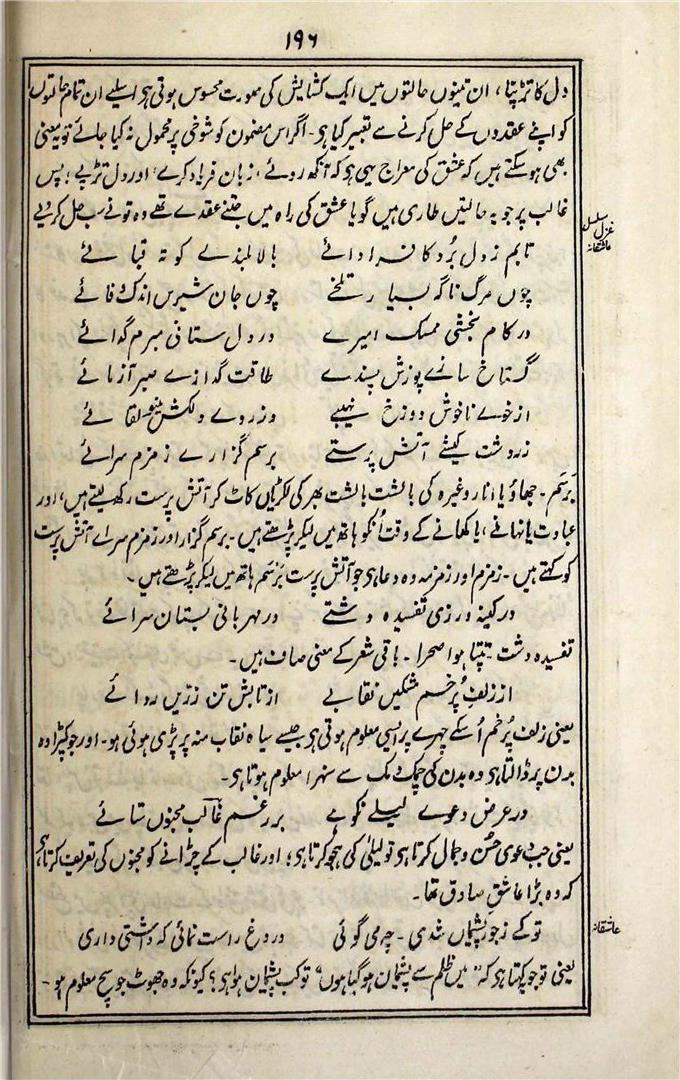 ۱۹۶
دل کا تڑپنا، ان تینوں حالتوں میں ایک کشایش کی صورت محسوس ہوتی ہی اسلیے ان تمام حالتوں
کو اپنے عقدوں کے حل کرنے سے تعبیر کیا ہی۔ اگر اس مضمون کو شوخی پر محمول نہ کیا جائے تو یہ معنی
بھی ہو سکتے ہیں کہ عشق کی معراج یہی ہی کہ آنکھ روئے، زبان فریاد کرے اور دل تڑپے؛ پس
غالب پر جو یہ حالتیں طاری ہیں گویا عشق کی راہ میں جتنے عقدے تھے وہ تونے سب حل کر دیے
غزل مسلسل عاشقانہ
تابم ز دل برد کافر ادائے بالا بلندے کوتہ قبائے
چوں مرگ ناگہ بسیار تلخے چوں جان شیریں اندک وفائے
در کام بخشی ممسک امیرے در دل ستانی مبرم گدائے
گستاخ سازے پوزش پسندے طاقت گدازے صبر آزمائے
از خوے ناخوش دوزخ نہیبے وز روے دلکش مینو لقائے
زردشت کیشے آتش پرستے برسم گزارے زمزم سرائے
برسم۔ جھاؤ یا انار وغیرہ کی بالشت بالشت بھر کی لکڑیاں کاٹ کر آتش پرست رکھ لیتے ہیں، اور
عبادت یا نہانے، یا کھانے کے وقت اُنکو ہاتھ میں لیکر پڑھتے ہیں۔ برسم گزار اور زمزم سرائے آتش پرست
کو کہتے ہیں۔ زمزم اور زمزمہ وہ دعا ہی جو آتش پرست برسم ہاتھ میں لیکر پڑھتے ہیں۔
در کینہ ورزی تفسیدہ دشتے در مہربانی بستان سرائے
تفسیدہ دشت۔ تپتا ہوا صحرا۔ باقی شعر کے معنی صاف ہیں۔
از زلفِ پُر خم مشکیں نقابے از تابش تن زریں ردائے
یعنی زلف پُر خم اُسکے چہرے پر ایسی معلوم ہوتی ہی جیسے سیاہ نقاب منہ پر پڑی ہوئی ہو۔ اور جو کپڑا وہ
بدن پر ڈالتا ہی وہ بدن کی چمک دمک سے سنہرا معلوم ہوتا ہی۔
در عرض دعوے لیلے نکوہے بر رغم غالب مجنوں ستائے
یعنی جب دعوی حسن و جمال کرتا ہی تو لیلیٰ کی ہجو کرتا ہی؛ اور غالب کے چڑانے کو مجنوں کی تعریف کرتا ہی
کہ وہ بڑا عاشق صادق تھا۔
عاشقانہ
تو کے ز جور پشیماں شدی۔ چہ می گوئی دروغ راست نمائی کہ داشتی داری
یعنی تو جو کہتا ہی کہ "میں ظلم سے پشیمان ہو گیا ہوں" تو کب پشیمان ہوا ہی؟ کیونکہ وہ جھوٹ جو سچ معلوم ہو۔